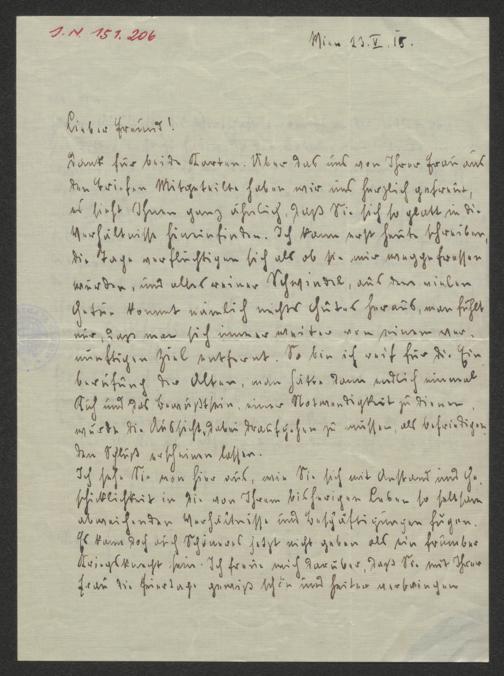 J.N. 151.206
Wien 23.V.15.
Lieber Freund!
Dank für beide Karten. Über das uns von Ihrer Frau aus
den Briefen Mitgeteilte haben wir uns herzlich gefreut,
es sieht Ihnen ganz ähnlich, daß Sie sich so glatt in die
Verhältnisse hineinfinden. Ich kann erst heute schreiben,
die Tage verflüchtigen sich als ob sie mir weggefressen
würden, und alles reiner Schwindel, aus dem vielen
Getue kommt nämlich nichts Gutes heraus, man fühlt
nur, daß man sich immer weiter von einem ver-
nünftigen Ziel entfernt. So bin ich reif für die Ein
berufung der Alten, man hätte dann endlich einmal
Ruh und das Bewußtsein, einer Notwendigkeit zu dienen
würde die Aussicht, dabei draufgehen zu müssen, als befriedigen
den Schluß erscheinen lassen.
Ich sehe Sie von hier aus, wie Sie sich mit Anstand und Ge-
schicklichkeit in die von Ihrem bisherigen Leben so seltsam
abweichenden Verhältnisse und Beschäftigungen fügen.
Es kann doch auch Schöneres jetzt nicht geben als ein
Kriegsknecht sein. Ich freue mich darüber, daß Sie mit Ihrer
Frau die Feiertage gewiß schön und heiter verbringen